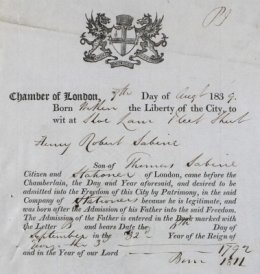 Chamber of London, 7th Day of Augt 1839.
Born Within the Liberty of the City, to
wit at Shoe Lane Fleet Street
Henry Robert Sabine
Son of Thomas Sabine
Citizen and Stationer of London, came before the
Chamberlain, the Day and Year aforesaid, and desired to be
admitted into the Freedom of this City by Patrimony, in the said
Company of Stationers because he is legitimate, and
was born after the Admission of his Father into the said Freedom.
The Admission of his Father is entered in the Book marked with
the Letter B and bears Date the Day of
September in the 32 Year of Reign of
Geo: the 3d
and in the Year of our Lord 1792
Born 1811